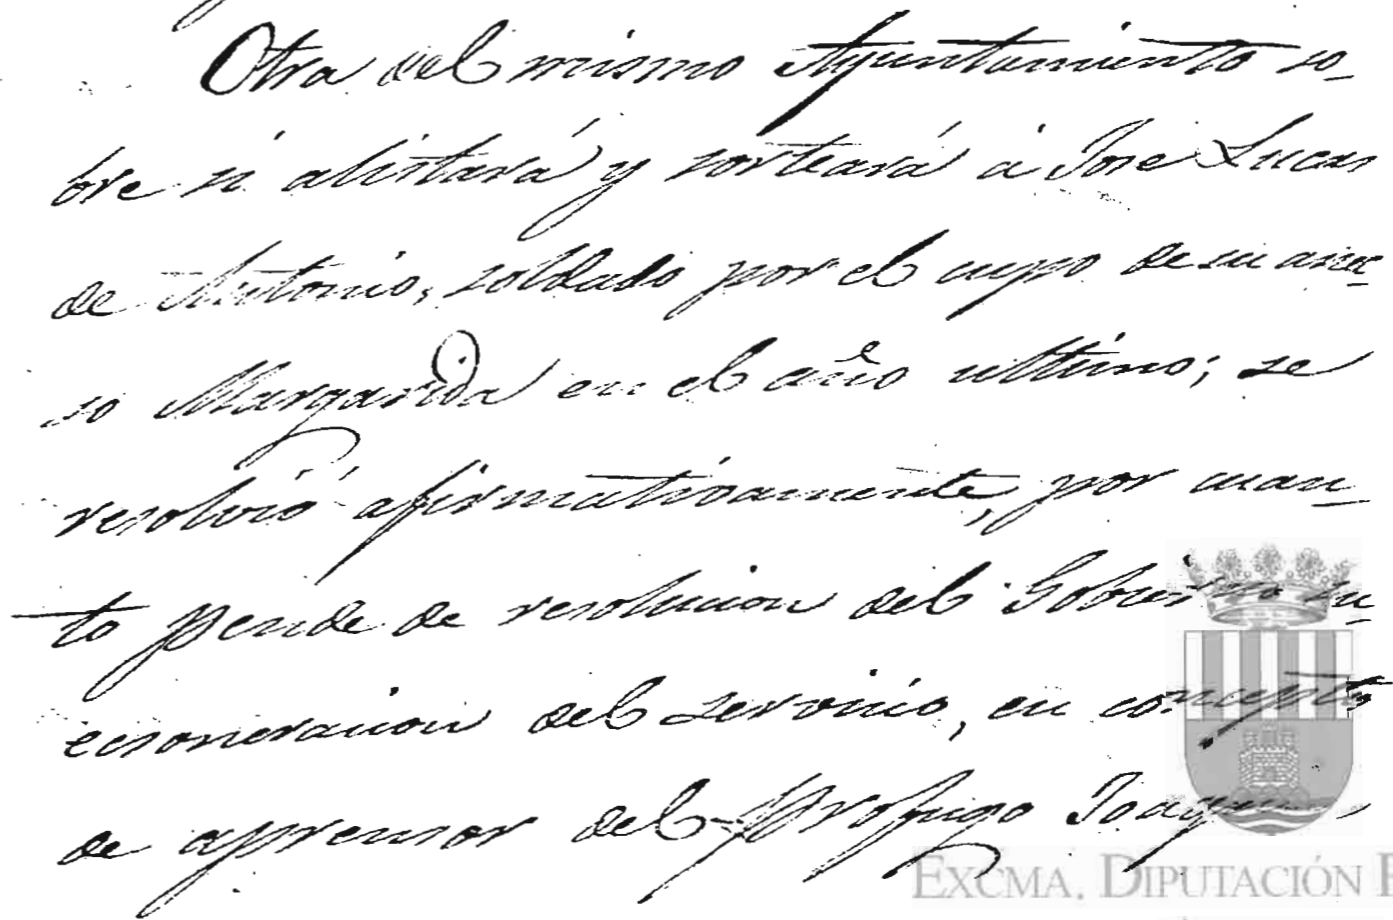 Otra del mismo Ayuntamiento so-
bre si alistará y sorteará á Jose Lucas
de Antonio, soldado por el cupo de su ane-
so Margarida en el año ultimo; se
resolvió afirmativamente, por cuan-
to pende de resolucion del Gobierno su
ecsoneracion del servicio, en concepto
de aprensor del profugo Joaquin
EXCMA. DIPUTACIÓN P